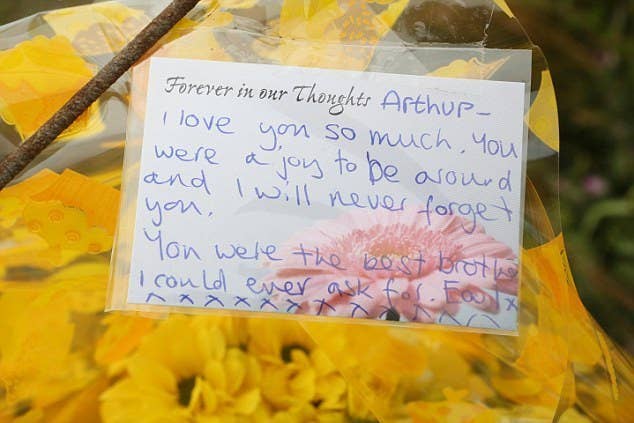 Forever in our Thoughts Arthur-
I love you so much. You
were a joy to be around
and I will never forget
you.
You were the best brothe
I could ever ask for.
x x x x x x x x x x x x x